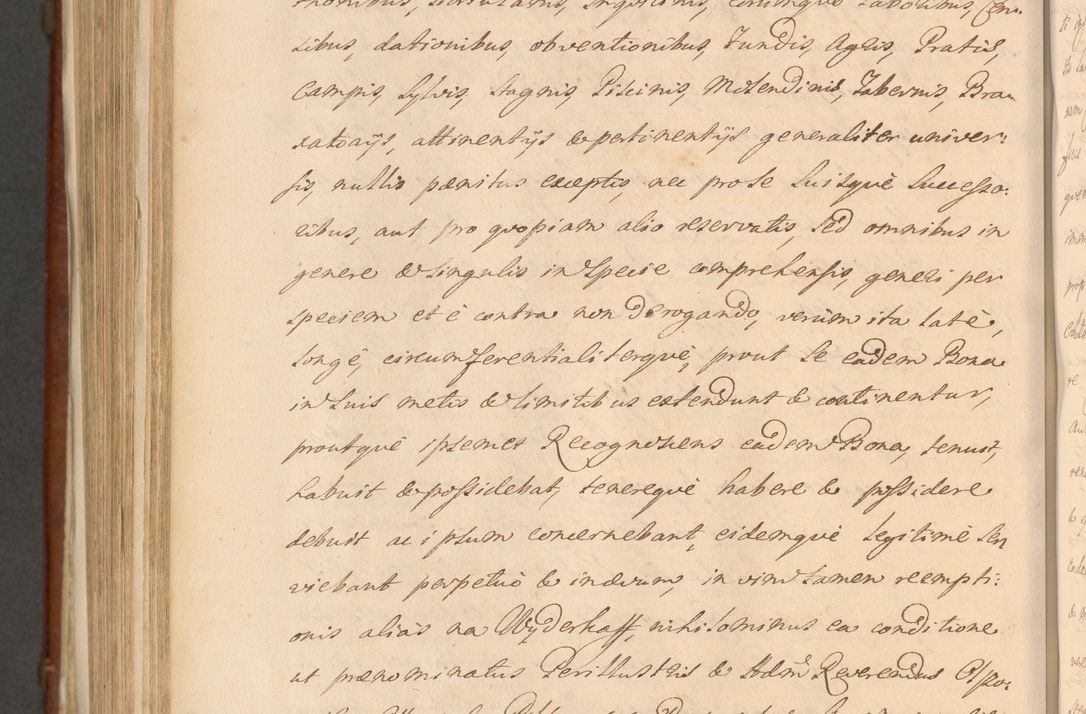 sibus, dationibus, obventionibus, Fundis, Agris, Pratis,
Campis, Sylvis, Stagnis, Piscinis, Molendinis, Tabernis, Bra-
xatorijs, attinentijs & pertinentijs generaliter univer:
sis, nullis pœnitus exceptis, nec pro se Suisquè Successo:
ribus, aut pro quopiam alio reservatis, Sed omnibus in
genere & Singulis in Specie comprehensis, generi per
speciem et è contra non Derogando, verùm ita latè,
longè, circumferentialiterquè, prout Se eadem Bona
in Suis metis & limitibus extendunt & continentur,
proutquè ipsemet Recognoscens eadem Bona, tenuit,
habuit & possidebat, tenerequè habere & possidere
debuit ac ipsum concernebant, eidemquè legitimè Ser
viebant perpetuò & in ævum, in vim tamen reempti:
onis alias na Wÿderkaff, nihilominus ea conditione
ut prænominatus Perillustris & Adm̃ Reverendus